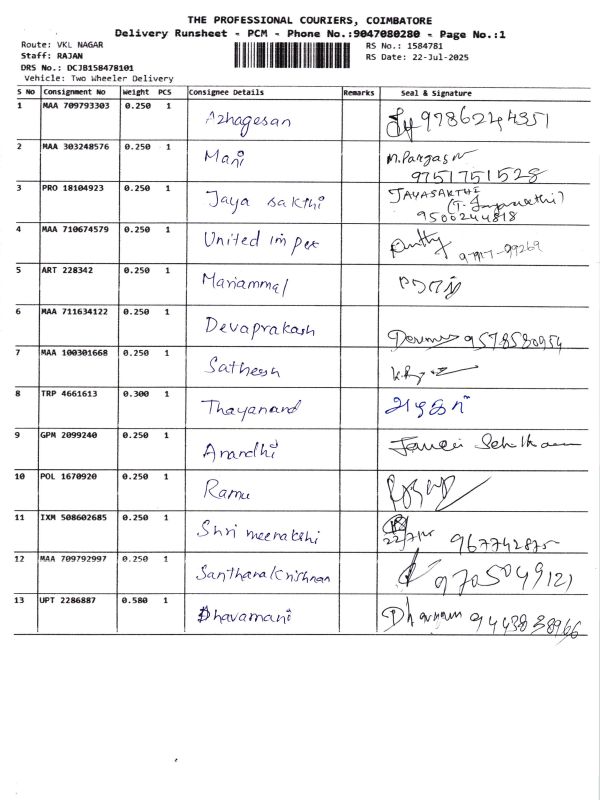 THE PROFESSIONAL COURIERS, COIMBATORE
Delivery Runsheet - PCM - Phone No.:9047080280 - Page No.:1
Route: VKL NAGAR RS No.: 1584781
Staff: RAJAN RS Date: 22-Jul-2025
DRS No.: DCJB158478101
Vehicle: Two Wheeler Delivery
S No Consignment No Weight PCS Consignee Details Remarks Seal & Signature
1 MAA 709793303 0.250 1 Azhagesan 9786244351
2 MAA 303248576 0.250 1 Mani
9751751528
3 PRO 18104923 0.250 1 Jaya sakthi JAYASAKTHI
9500244818
4 MAA 710674579 0.250 1 United impex
5 ART 228342 0.250 1 Mariammal
6 MAA 711634122 0.250 1 Devaprakash 9578580954
7 MAA 100301668 0.250 1 Satheesh
8 TRP 4661613 0.300 1 Thayanand
9 GPM 2099240 0.250 1 Anandhi
10 POL 1670920 0.250 1 Ramu
11 IXM 508602685 0.250 1 Shri meenakshi
12 MAA 709792997 0.250 1 Santhanakrishnan 9705049121
13 UPT 2286887 0.580 1 Dhavamani